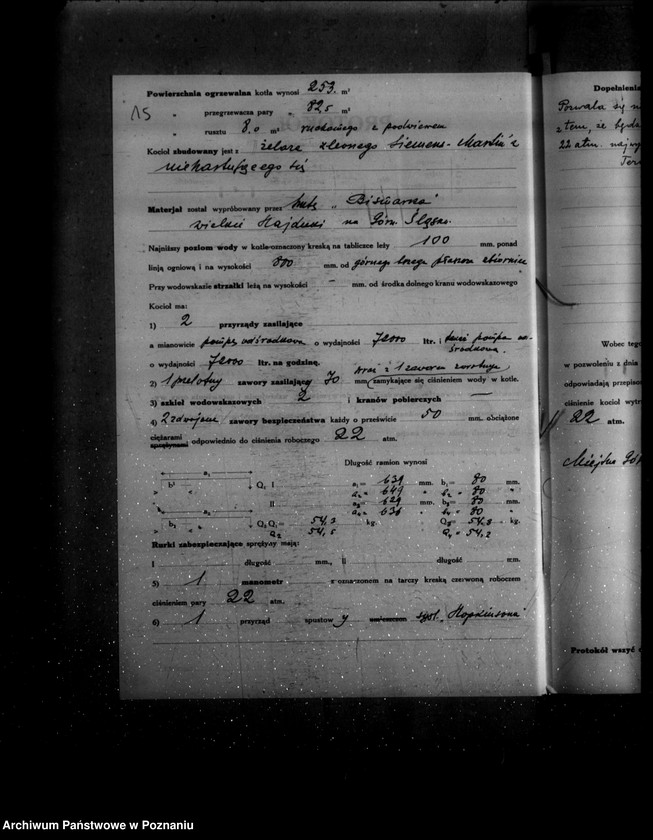 15
Powierzchnia ogrzewalna kotła wynosi 253. m²
" przegrzewacza pary " 82,5 m²
" rusztu 8.0 m² ruchomego z podwiewem
Kocioł zbudowany jest z żelaza zlewnego Siemens-Martin'a
niehartującego się
Materjał został wypróbowany przez hutę „Bismarka"
Wielkie Hajduki na Górn. Śląsku.
Najniższy poziom wody w kotle oznaczony kreską na tabliczce leży 100 mm. ponad
linją ogniową i na wysokości 880 mm. od górnego brzegu płaszcza zbiornika
Przy wodowskazie strzałki leżą na wysokości — mm. od środka dolnego kranu wodowskazowego
Kocioł ma:
1) 2 przyrządy zasilające
a mianowicie pompę odśrodkową o wydajności ltr. i pompa od-
środkowa.
o wydajności ltr. na godzinę.
wraz z 1 zaworem zwrotnym
2) 1 przelotny zawory zasilający 70 mm. zamykające się ciśnieniem wody w kotle.
3) szkieł wodowskazowych 2 i kranów pobierczych —
4) 2 zdwojone zawory bezpieczeństwa każdy o prześwicie 50 mm. obciążone
ciężarami
sprężynami odpowiednio do ciśnienia roboczego 22 atm.
Długość ramion wynosi
a₁ b¹ Q₁ I a₁ = 639 mm. b₁ = 80 mm.
a₂ = 649 " b₂ = 80 "
II a₃ = 629 mm. b₃ = 80 mm.
a₂ b₂ a₄ = 636 b₄ = 80 "
Q₂ Q₁ = 54,3 kg. Q₃ = 54,8 kg.
Q₂ 54,5 Q₄ = 54,2
Rurki zabezpieczające sprężyny mają:
I długość mm., II długość mm.
5) 1 manometr z oznaczonem na tarczy kreską czerwoną roboczem
ciśnieniem pary 22 atm.
6) 1 przyrząd spustowy umieszczon syst. „Hopkinsona"
Dopełnienia
Pozwala się
z tem, że będą
22 atm. najwy
Wobec tego
w pozwoleniu z dnia
odpowiadają przepiso
ciśnienie kocioł wytrz
22 atm.
Miejska Gór
Protokół wszyć
Archiwum Państwowe w Poznaniu